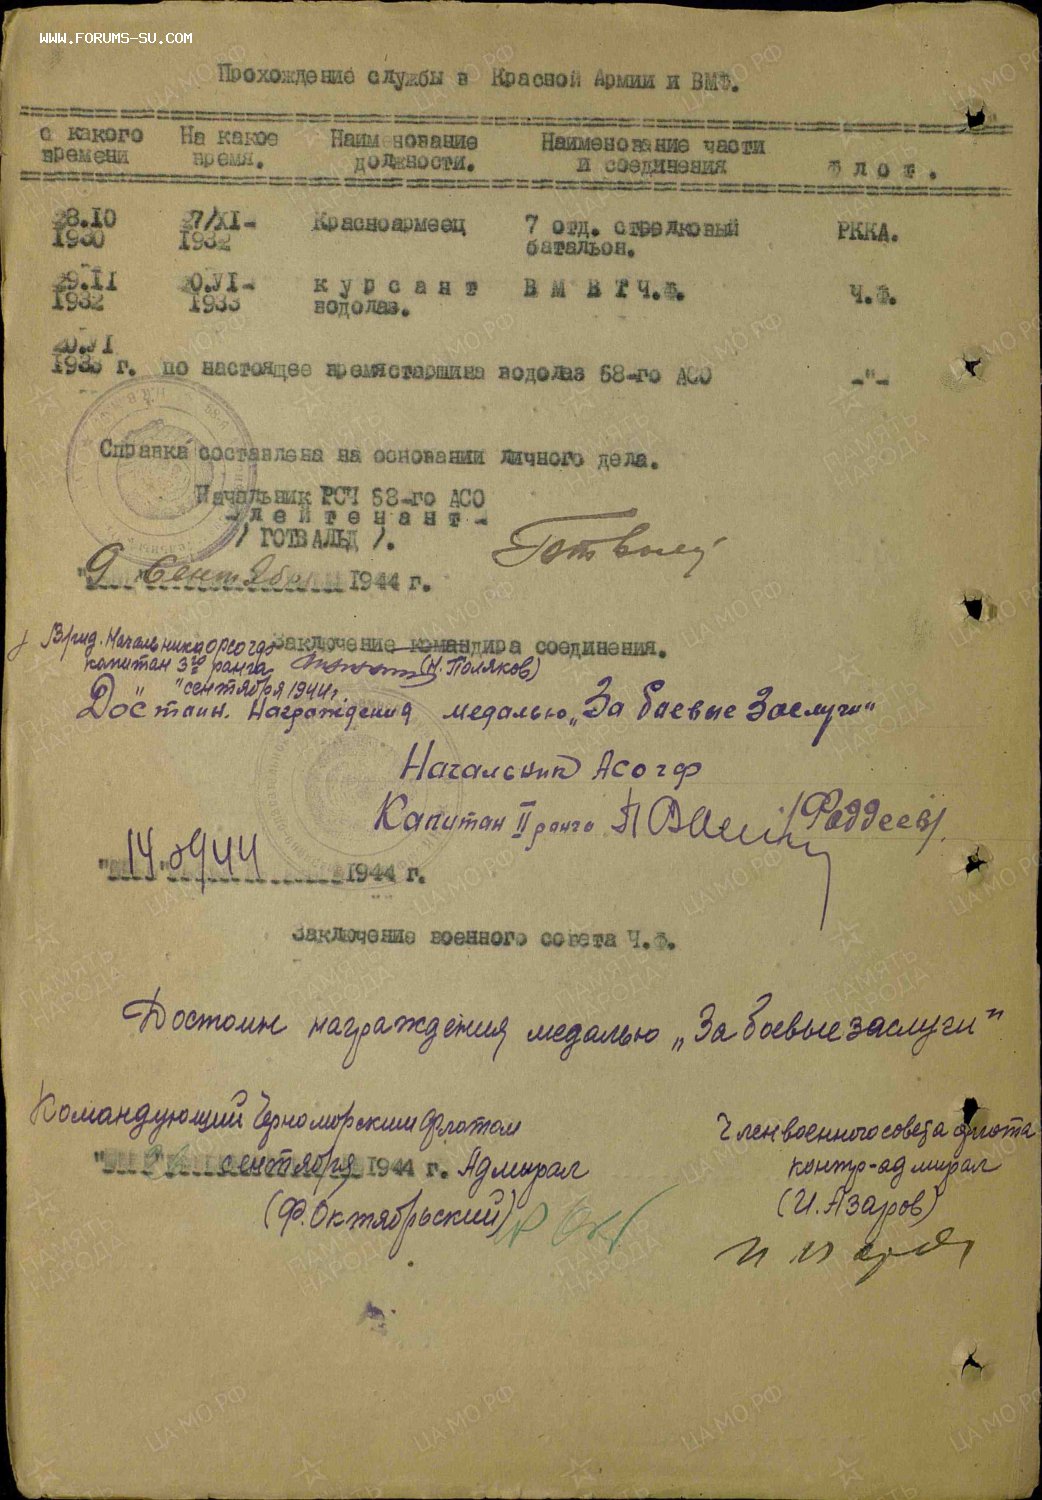 WWW.FORUMS-SU.COM
Прохождение службы в Красной Армии и ВМФ.
с какого времени На какое время. Наименование должности. Наименование части и соединения Ф л о т .
28.IO 1930 27/XI- 1932 Красноармеец 7 отд. стрелковый батальон. РККА.
29.II 1932 20.VI- 1933 к у р с а н т водолаз. В М В Т Ч.Ф. Ч.Ф.
20.VI
1933 г. по настоящее времястаршина водолаз 68-го АСО -"-
Справка составлена на основании личного дела.
Начальник РСЧ 68-го АСО
- л е й т е н а н т -
/ ГОТВАЛЬД /.
"9" сентября 1944 г.
Заключение командира соединения.
Врид. Начальника
капитан 3го ранга (Н. Поляков)
" сентября 1944 г.
Достоин. Награждения медалью "За боевые Заслуги"
Начальник АСОЧФ
Капитан II ранга /Фаддеев/.
"14" 09 44 1944 г.
Заключение военного совета Ч.Ф.
Достоин награждения медалью "За боевые заслуги"
Командующий Черноморским Флотом
сентября 1944 г. Адмирал
(Ф. Октябрьский)
Член военного совета флота
контр-адмирал
(И. Азаров)
ЦАМО.РФ
ПАМЯТЬ НАРОДА